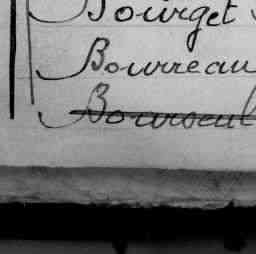 Bourget
Bourreau
Bourseul